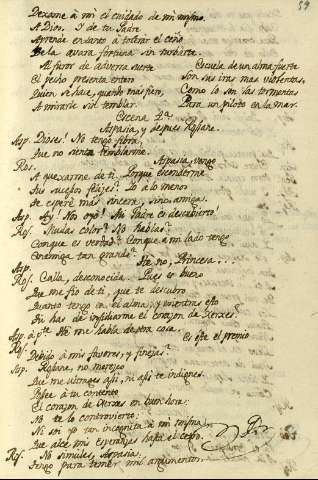 59
Dexame à mì el cuidado de mì mismo.
A Dios. Y de tu Padre
Aprende entanto à tolerar el ceño
De la avara fortuna sin turbarte.
Al furor de adversa suerte
El pecho presenta entero
Quien se hace, quando mas fiero,
A mirarle sin temblar.
Escuela de un alma fuerte
Son sus iras mas violentas,
Como lo son las tormentas
Para un piloto en la mar.
Escena 4ª
Aspasia, y despues Roxane.
Asp. Dioses! No tengo fibra,
Que no sienta temblarme.
Ros. Aspasia, vengo
A quexarme de ti. Porquè esconderme
Tus sucesos felizes? Yo à lo menos
Te esperè mas sincera, sino amiga.
Asp. Ay! Nos oyò! Mi Padre es descubierto!
Ros. Mudas color? No hablas?
Conque es verdad? Conque a mi lado tengo
Enemiga tan grande?
Asp. Yo no, Princesa...
Ros. Calla, desconocida. Pues es bueno
Que me fio de ti, que te descubro
Quanto tengo en el alma; y mientras esto
Tu has de insidiarme el corazon de Xerxes?
Asp. à pte No me habla de otra cosa.
Ros. Es este el premio
Debido à mis favores, y finezas?
Asp. Roxane, no merezco
Que me ultrages asi, ni asi te indignes.
Posee à tu contento
El corazon de Xerxes en buen hora:
No te lo controvierto:
Ni soy yo tan incognita à mi misma,
Que alce mis esperanzas hasta el cetro.
Ros. No simules, Aspasia;
Tengo para temer mil argumentos.